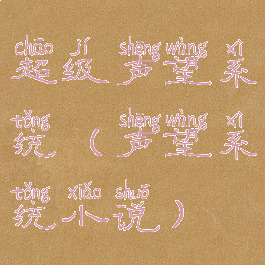 chāo jí shēng wàng xì
超级声望系
tǒng shēng wàng xì
统（声望系
tǒng xiǎo shuō
统小说）